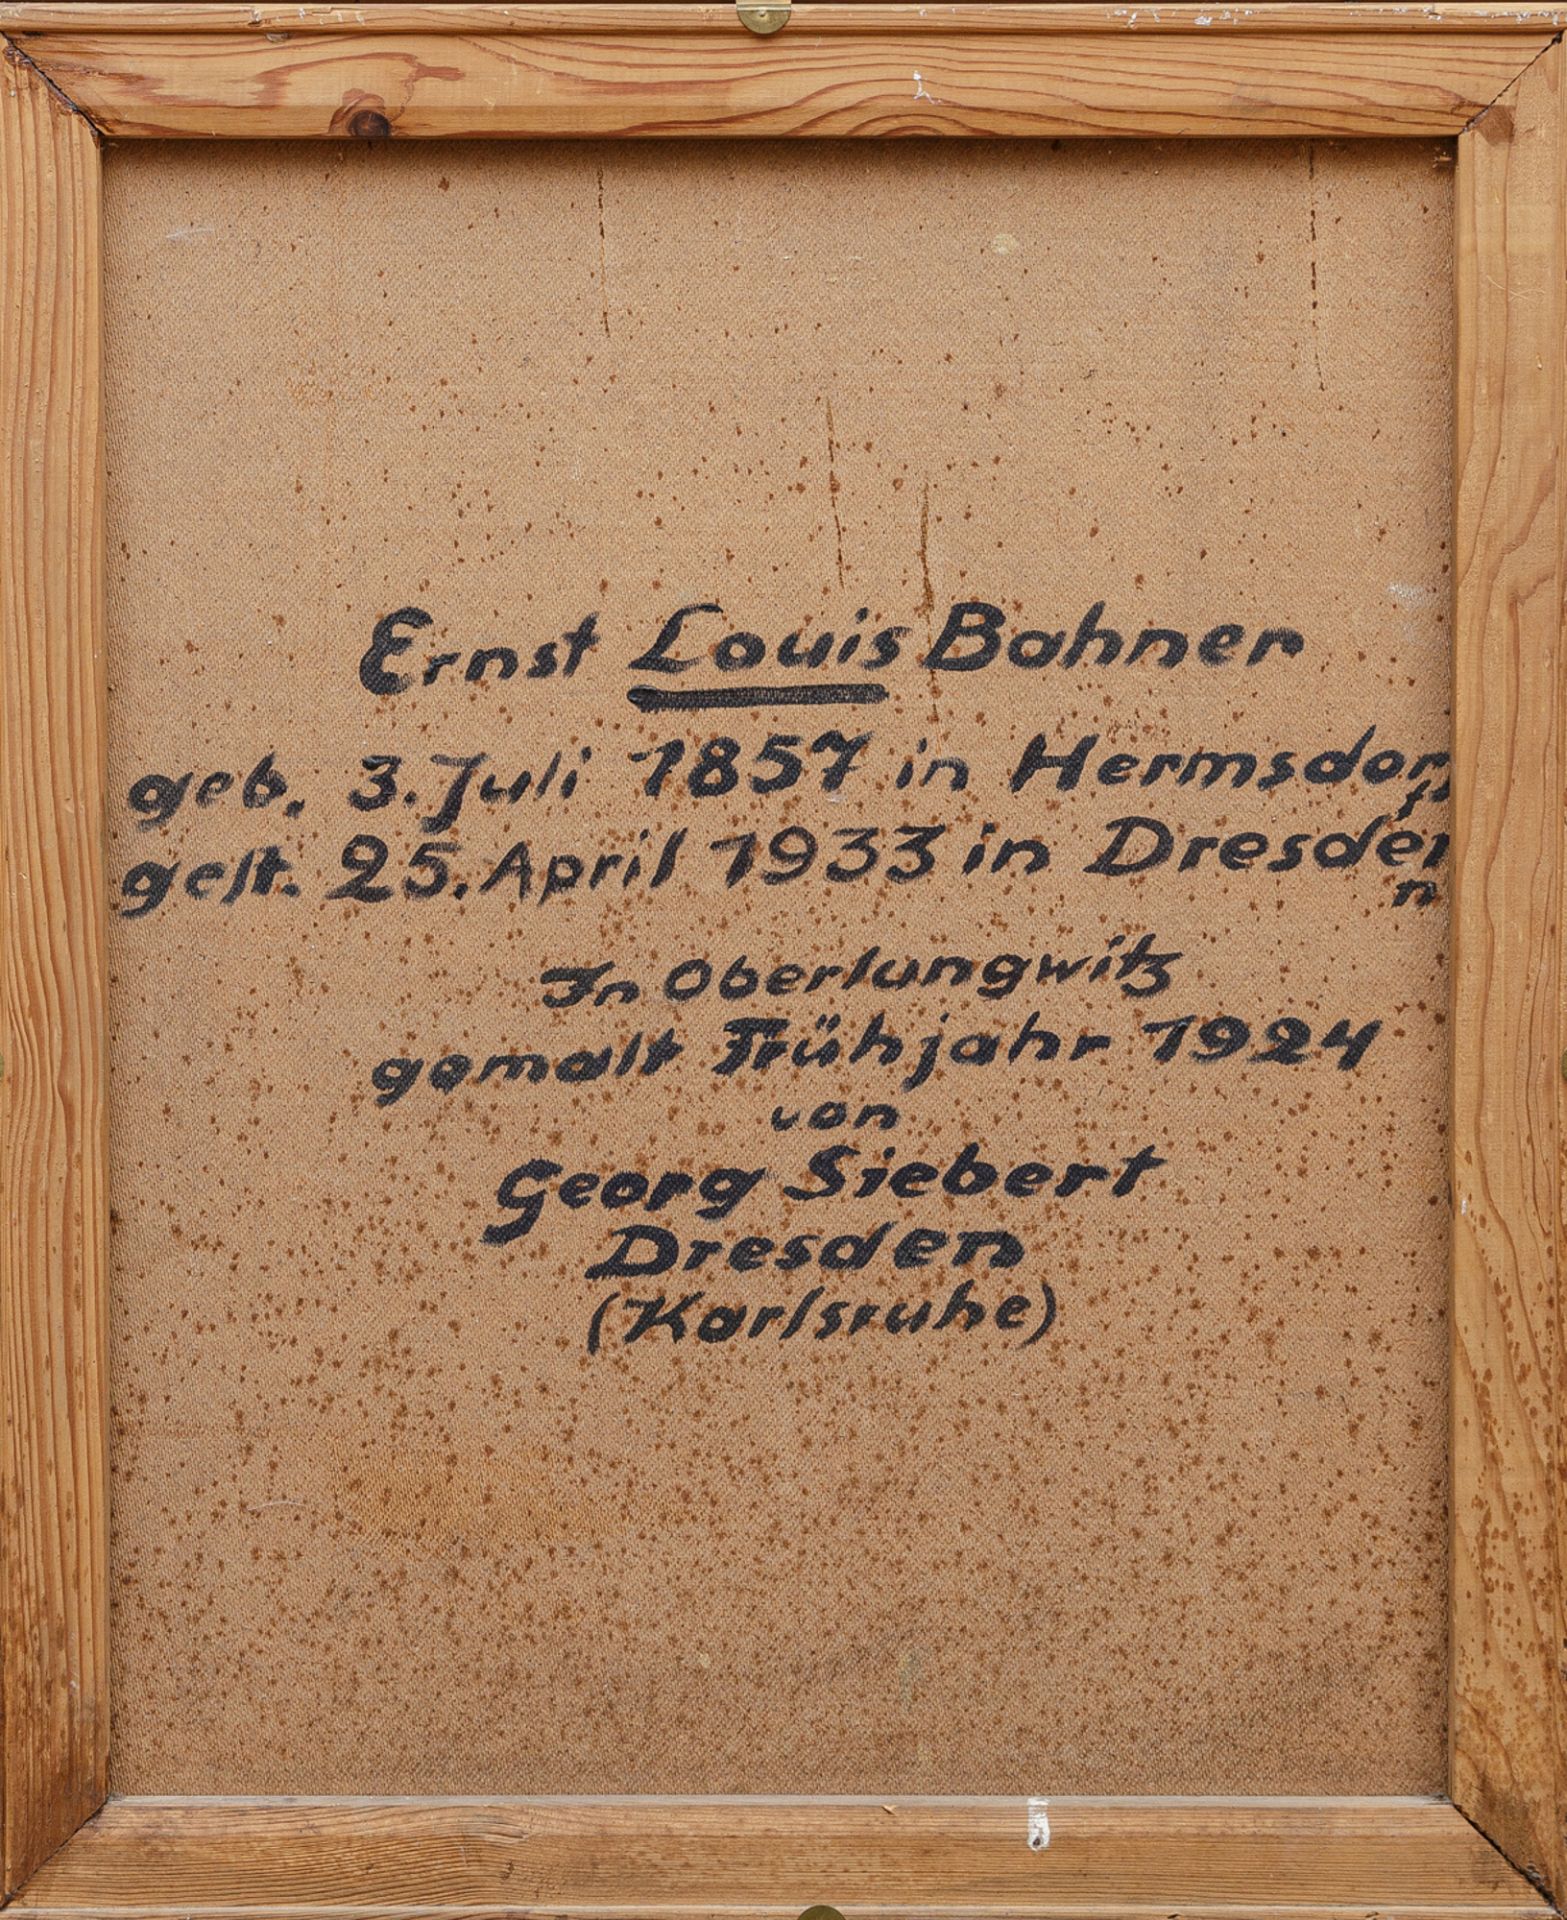 Ernst Louis Bahner
geb. 3. Juli 1857 in Hermsdorf
gest. 25. April 1933 in Dresden
n
In Oberlungwitz
gemalt Frühjahr 1924
von
Georg Siebert
Dresden
(Karlsruhe)